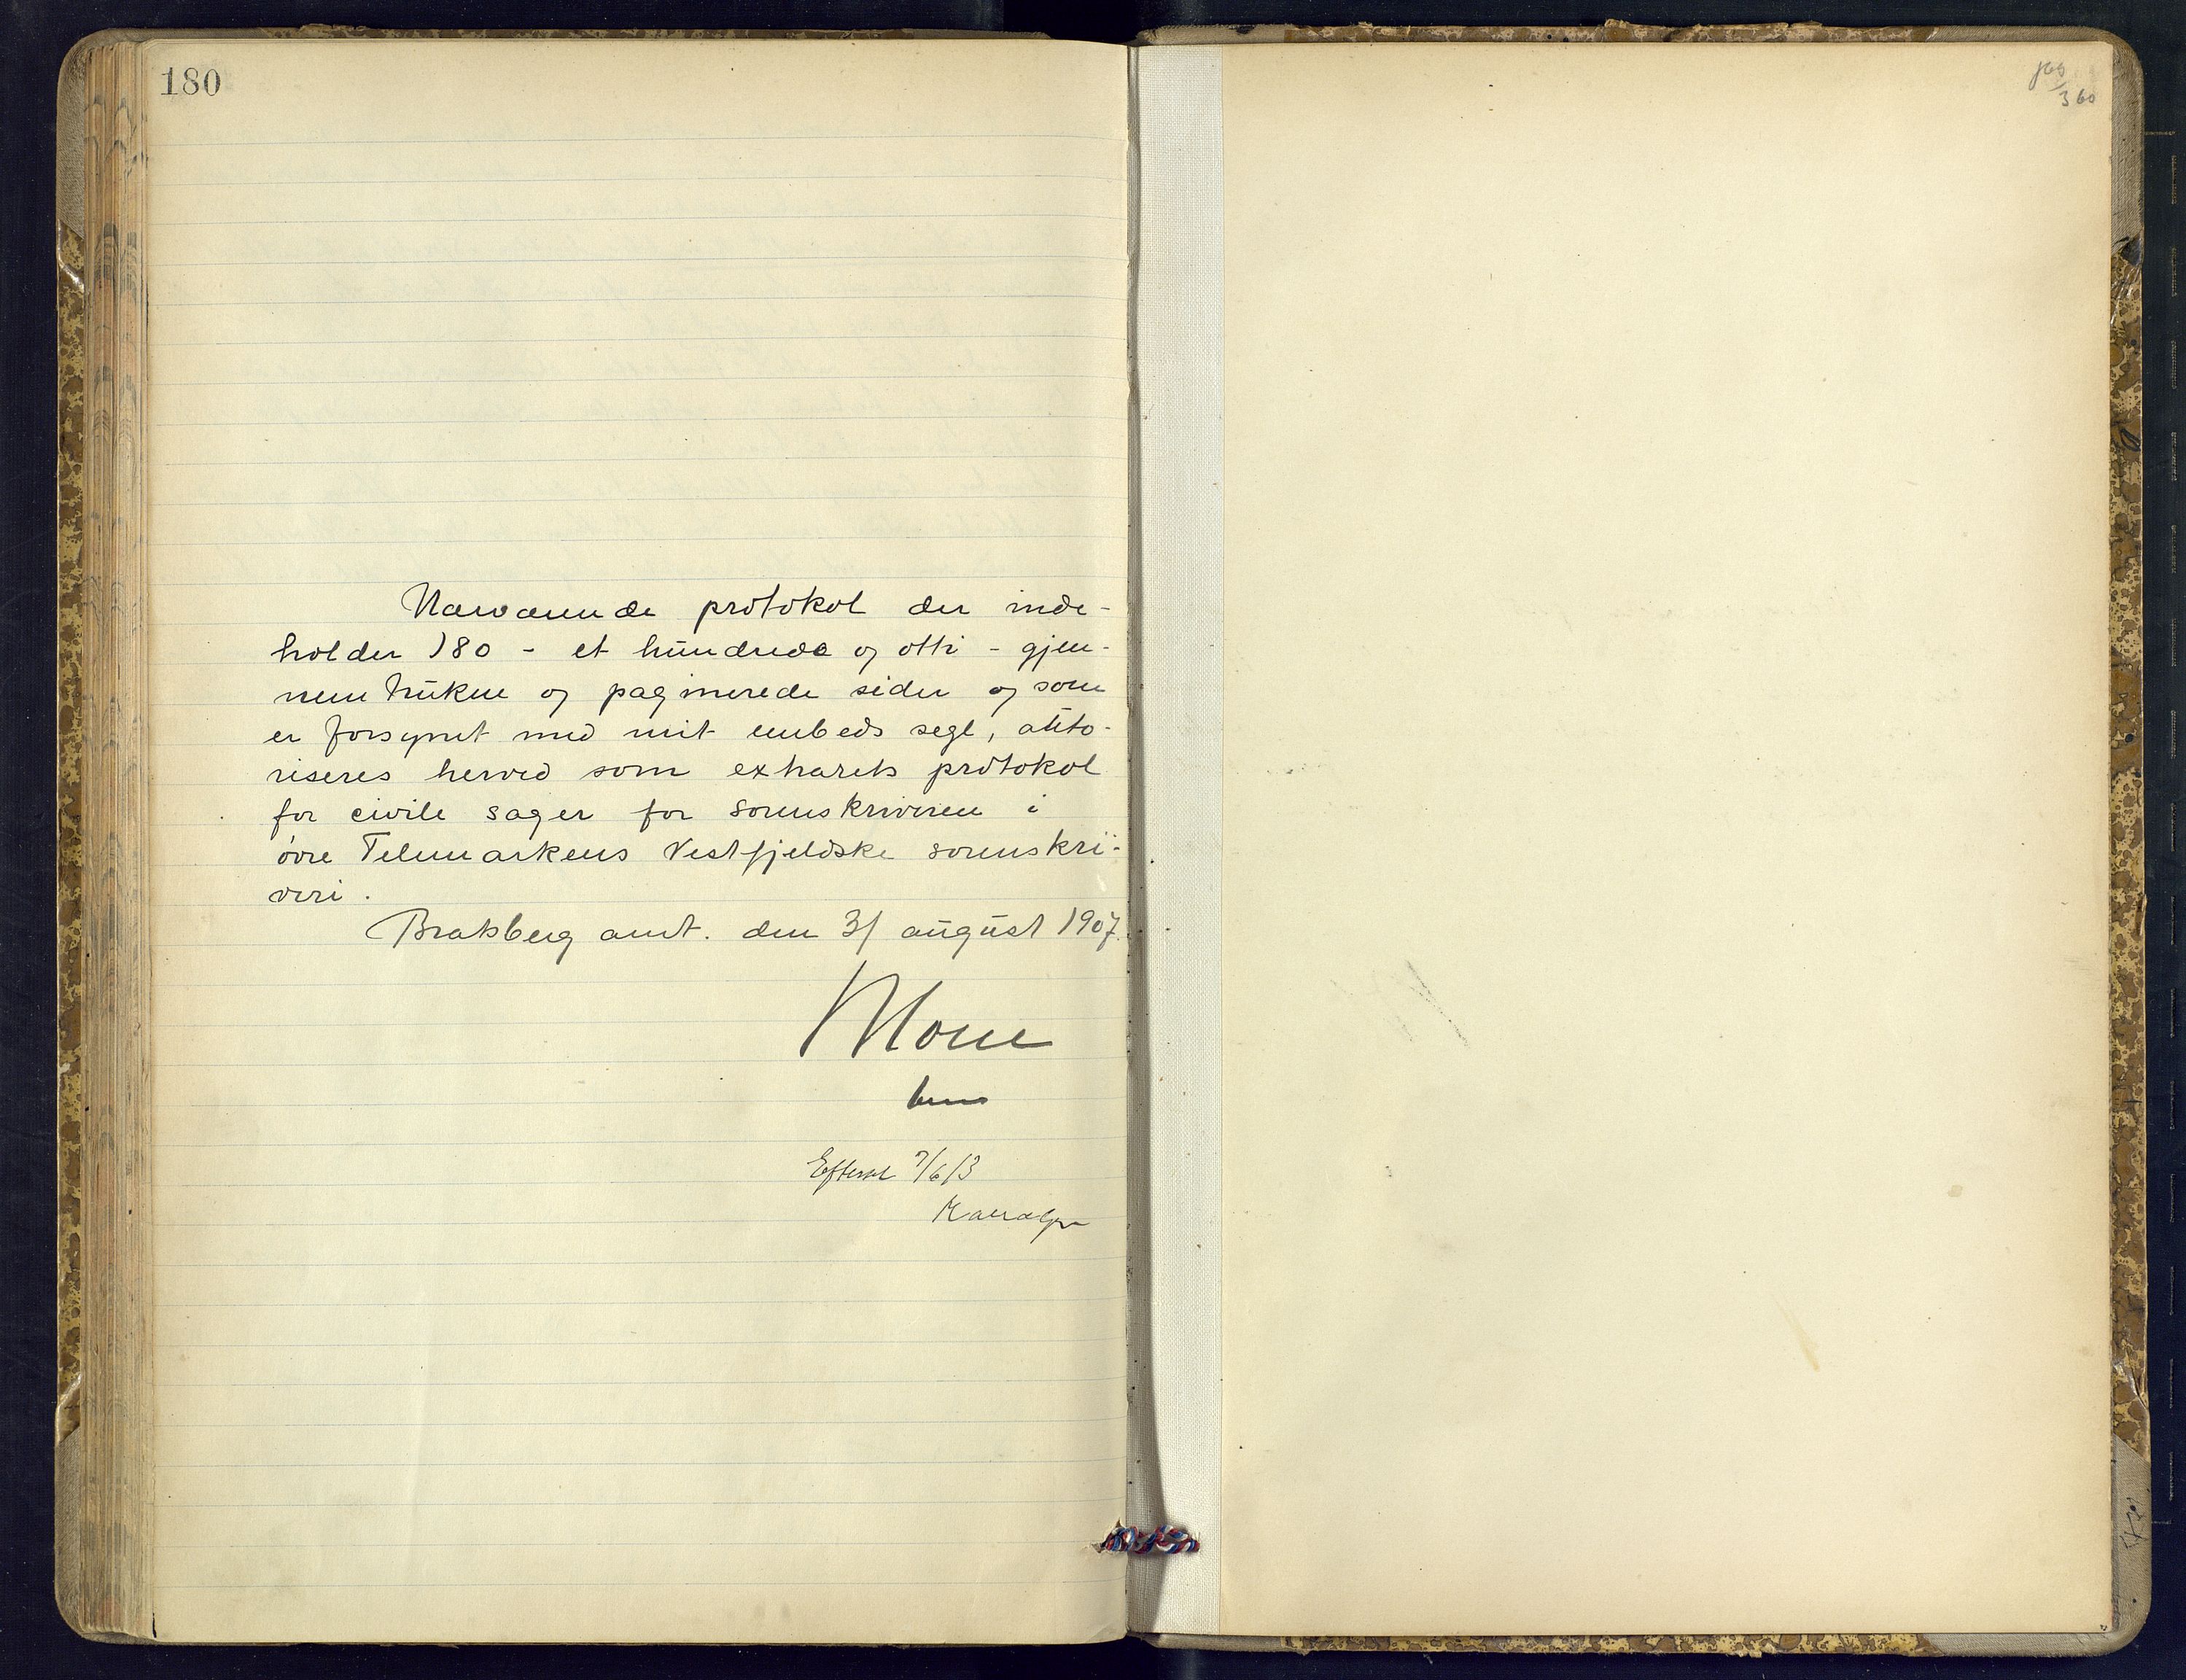 180
Nærværende protokol der inde-
holder 180 - et hundrede og otti - gjen-
nemtrukne og paginerede sider og som
er forsynet med mit embeds segl, auto-
riseres herved som extrarets protokol
for civile sager for sorenskriveren i
øvre Telemarkens Vestfjeldske sorenskri-
veri.
Bratsberg amt. den 31 august 1907.
Efterset 7/6 13
360